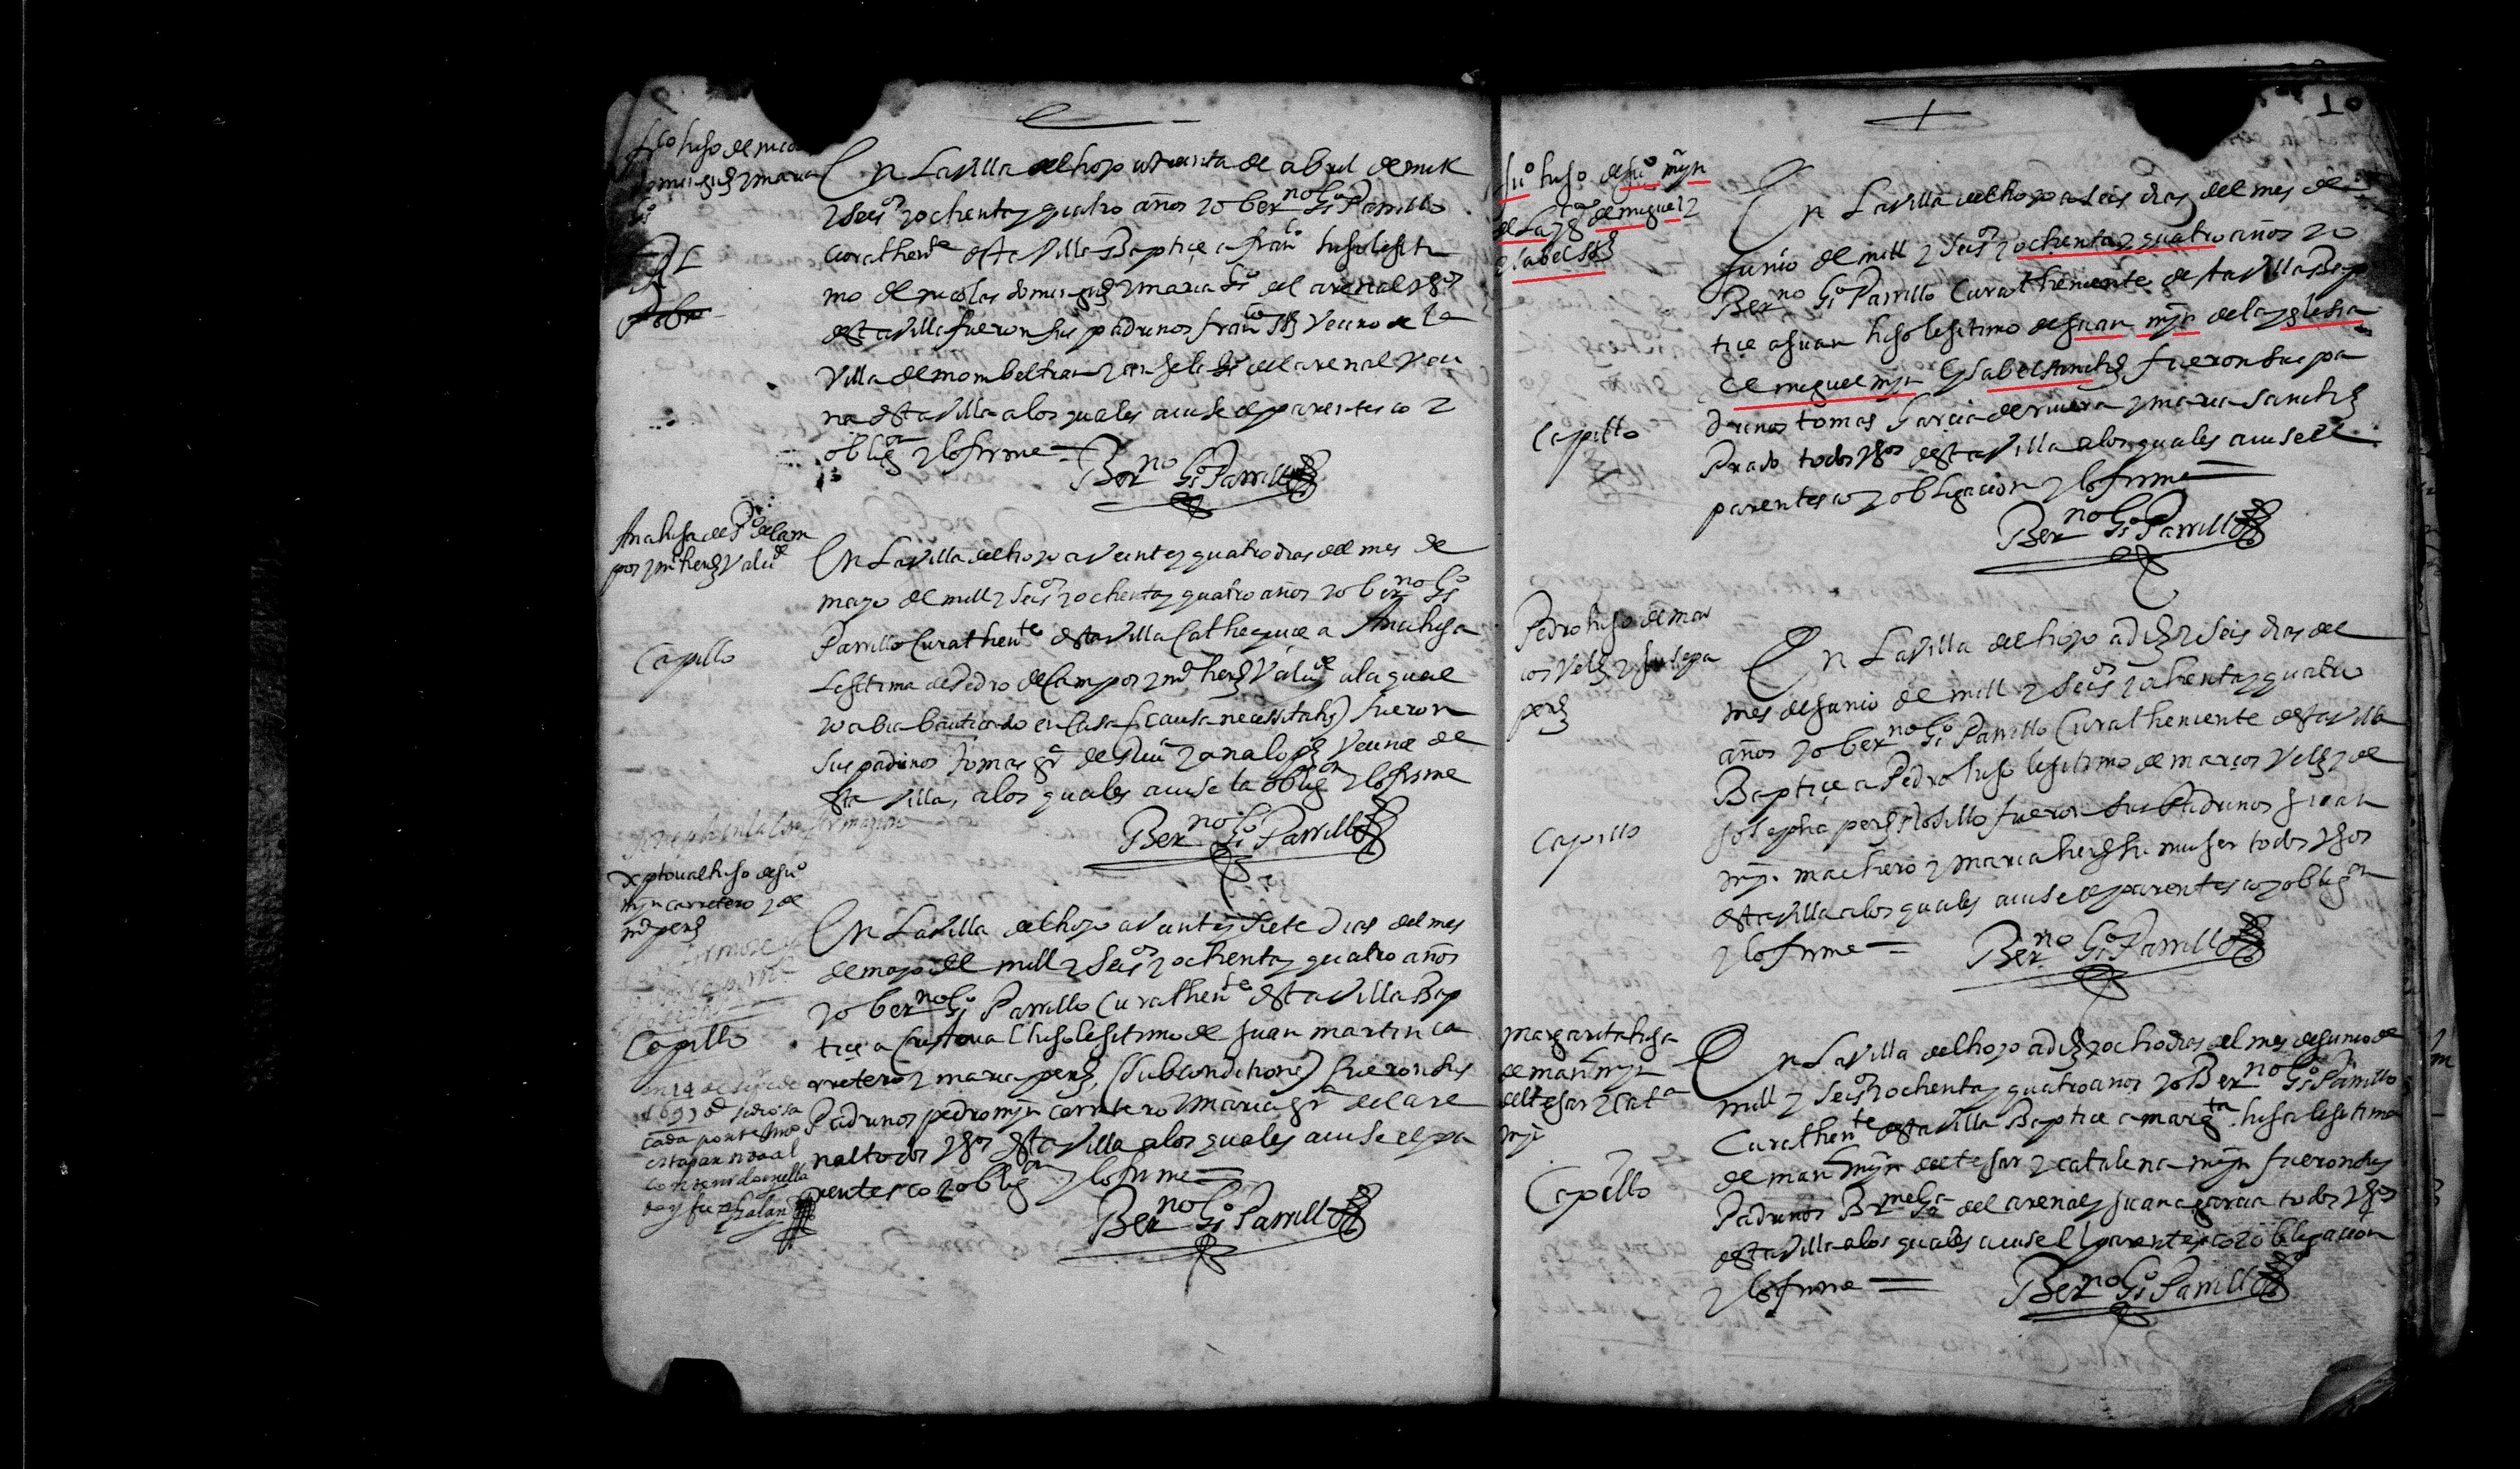 fco hijo de nicol
domingz y maria
En La Villa del hoyo a treinta de abril de mill
y seisos y ochenta y quatro años yo berno Go Parrillo
Curathente desta Villa Baptiçe a franco hijo lesiti
mo de nicolas domingz y maria Go del arenal vos
desta villa fueron sus padrinos franco Vecino de la
Villa de mombeltran y anjela del arenal veci
na desta villa a los quales avise el parentesco y
obligon y lo firme =
Berno Go Parrillo
Pobre
Ana hija de Po de Cam
pos y ma herz
Capillo
En La Villa del hoyo a veinte y quatro dias del mes de
mayo de mill y seisos y ochenta y quatro años yo berno Go
Parrillo Curathente desta Villa Cathequiçe a Ana hija
Lesitima de Pedro de Campos y ma herz a la qual
yo abia bautiçado en casa (causa necessitatis) fueron
sus padrinos tomas ga de y ana lopz Vecinos de
esta Villa, a los quales avise la obligon y lo firme
Berno Go Parrillo
Xptoual hijo de juo
mjn carretero y de
ma perz
Capillo
En La Villa del hoyo a veinte y siete dias del mes
de mayo de mill y seisos y ochenta y quatro años
yo berno Go Parrillo Curathente desta Villa Bap
tiçe a Cristoual hijo lesitimo de Juan martin ca
rretero y maria perz, (subconditione) fueron sus
Padrinos pedro mjn carretero y maria ga del are
nal todos vos desta villa a los quales avise el pa
rentesco y obligon y lo firme =
Berno Go Parrillo
en 14 de de
1693
cada por te
esta partida al
10
juo hijo de juo mjn
de la yga de miguel
y sabel
Capillo
En La Villa del hoyo a seis dias del mes de
Junio de mill y seisos y ochenta y quatro años yo
Berno Go Parrillo Curatheniente desta Villa Bap
tiçe a Juan hijo lesitimo de Juan mjn de la yglesia
de miguel mjn e ysabel Sanchz fueron sus pa
drinos tomas Garcia de rivera y maria Sanchz
Prado todos vos desta Villa a los quales avise el
parentesco y obligacion y lo firme =
Berno Go Parrillo
Pedro hijo de mar
cos Velz y josepa
perz
Capillo
En La Villa del hoyo a diz y seis dias del
mes de Junio de mill y seisos y ochenta y quatro
años yo berno Go Parrillo Curatheniente desta Villa
Baptiçe a Pedro hijo lesitimo de marcos Velz y de
Josepha perz Rosillo fueron sus Padrinos Juan
mjn machero y maria herz su muger todos vos
desta villa a los quales avise el parentesco y obligon
y lo firme =
Berno Go Parrillo
Margarita hija
de manl mjn
del tejar y Cata
mjn
Capillo
En La Villa del hoyo a diz y ocho dias del mes de Junio de
mill y seisos y ochenta y quatro años yo Berno Go Parrillo
Curathente desta Villa Baptiçe a margta hija lesitima
de manl mjn del tejar y catalina mjn fueron sus
Padrinos Brme Ga del arenal y Juana garcia todos vos
desta Villa a los quales avise el parentesco y obligacion
y lo firme =
Berno Go Parrillo